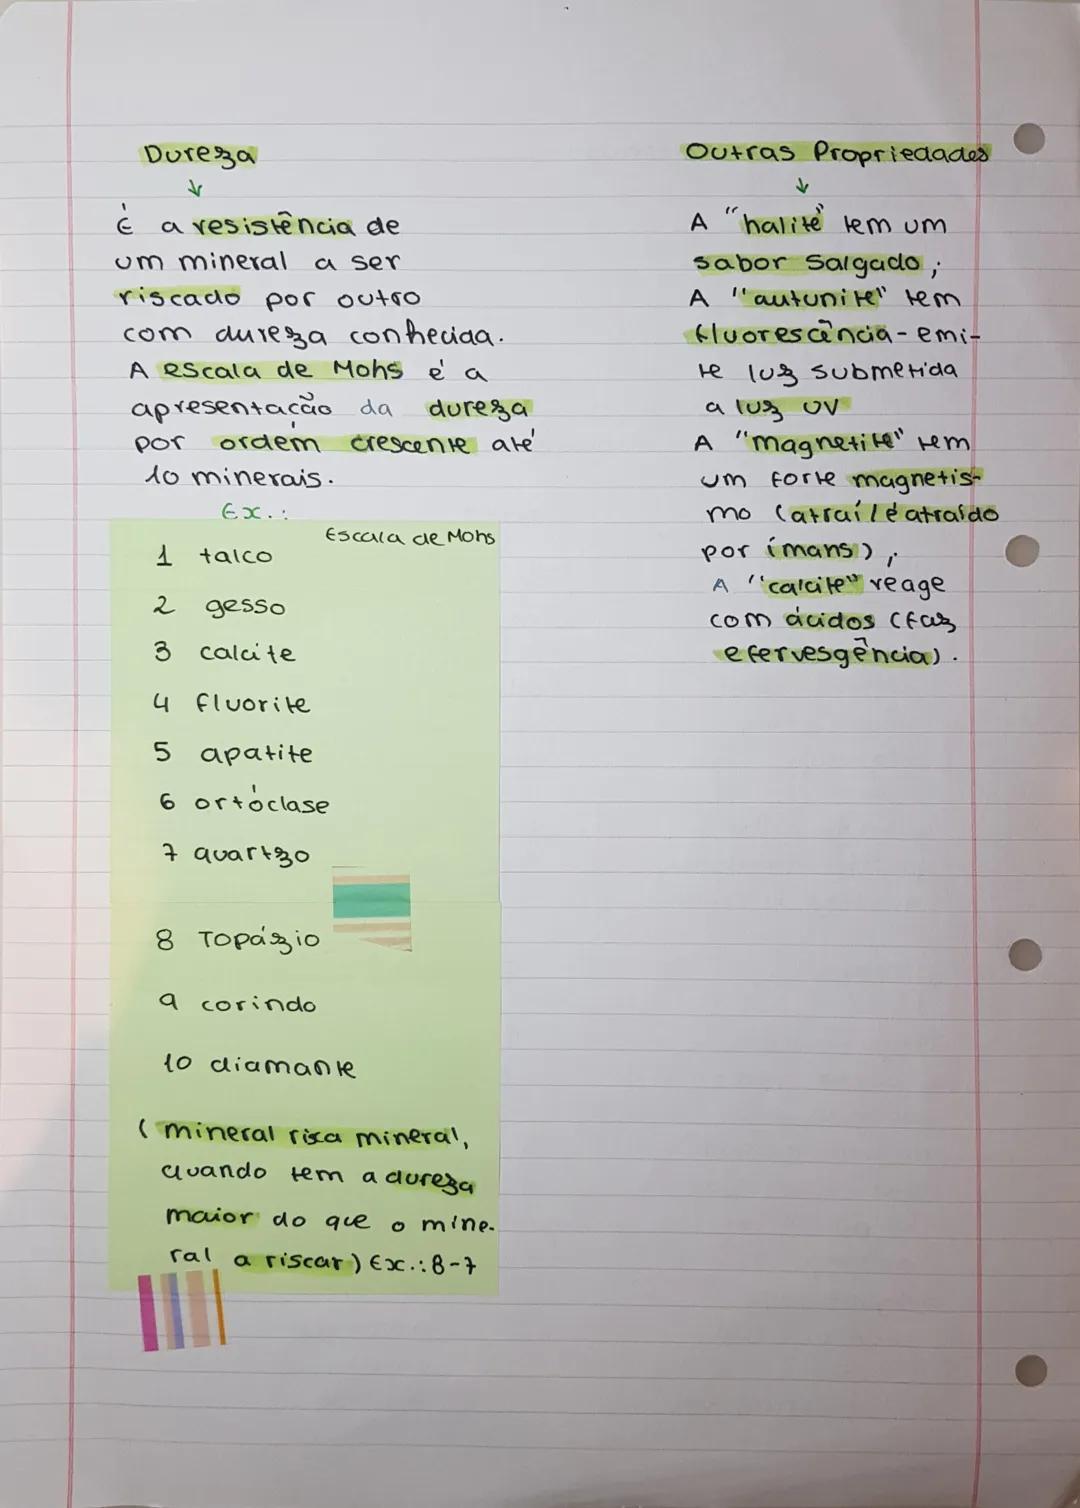 Dureza
É a resistência de
um mineral a ser
riscado por outro
com dureza conhecida.
A escala de Mohs é a
apresentação da dureza
por ordem crescente até
10 minerais.
Ex.:
Escala de Mohs
1 talco
2 gesso
3 calcite
4 fluorite
5 apatite
6 ortóclase
7 quartzo
8 Topázio
9 corindo
10 diamante
(mineral risca mineral,
quando tem a dureza
maior do que o mine-
ral a riscar) Ex.: 8-7
Outras Propriedades
A "halite" tem um
sabor salgado;
A "autunite" tem
fluorescência - emi-
te luz submetida
a luz UV
A "magnetite" tem
um forte magnetis-
mo (atrai/é atraído
por ímans);
A "calcite" reage
com ácidos (faz
efervesgência).